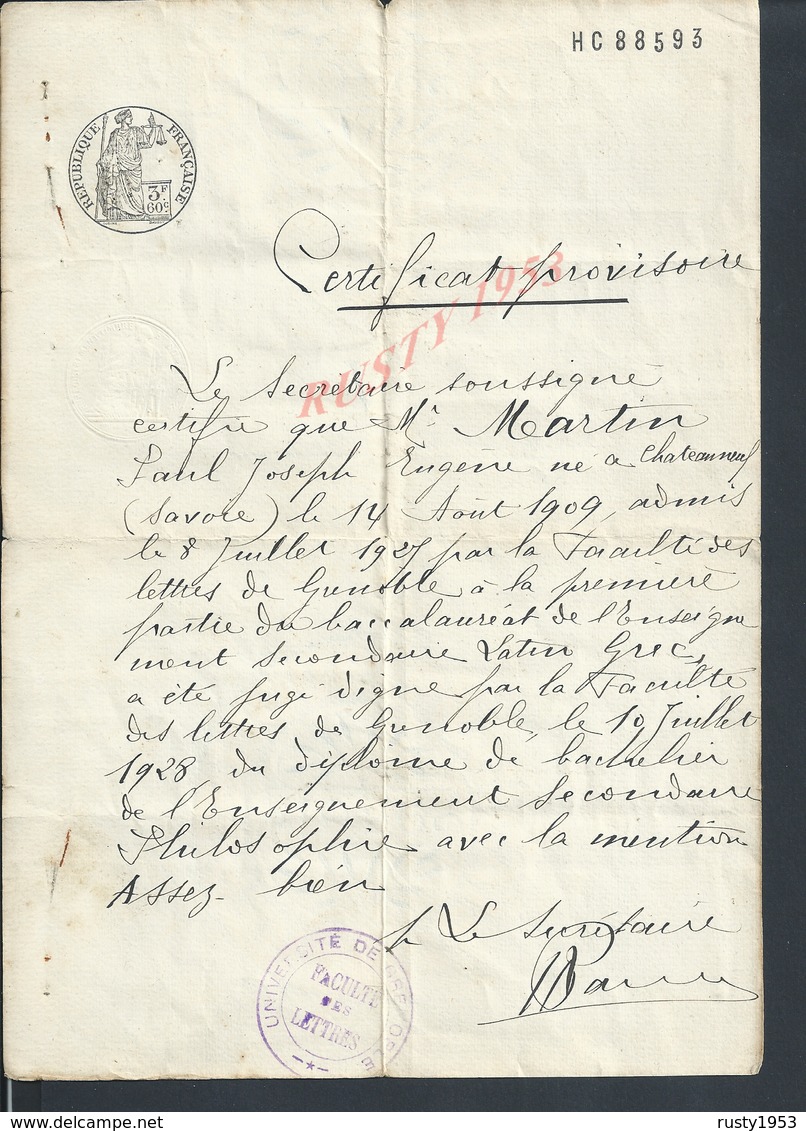 HC 88593
REPUBLIQUE FRANÇAISE
3F
60c
Certificat provisoire
RUSTY 1953
Le Secrétaire soussigné
certifie que Mr Martin
Paul Joseph Eugène né à Chateauneuf
(Savoie) le 14 Août 1909, admis
le 8 Juillet 1927 par la Faculté des
lettres de Grenoble à la première
partie du baccalauréat de l'Enseigne
ment secondaire Latin Grec,
a été jugé digne par la Faculté
des lettres de Grenoble, le 10 Juillet
1928, du diplôme de bachelier
de l'Enseignement Secondaire
Philosophie avec la mention
Assez bien
p Le Secrétaire
UNIVERSITÉ DE GRENOBLE
FACULTÉ
DES
LETTRES
rusty1953